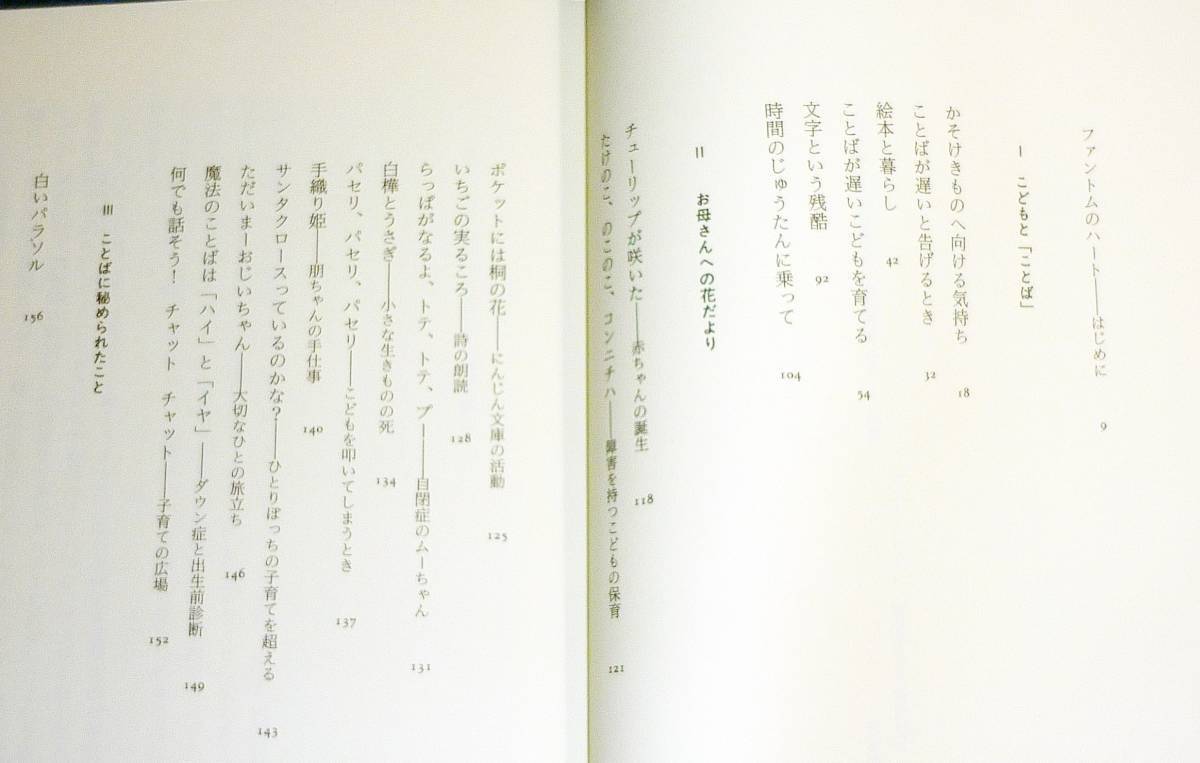 ファントムのハート――はじめに 9
Ⅰ こどもと「ことば」
かそけきものへ向ける気持ち 18
ことばが遅いと告げるとき 32
絵本と暮らし 42
ことばが遅いこどもを育てる 54
文字という残酷 92
時間のじゅうたんに乗って 104
Ⅱ お母さんへの花だより
チューリップが咲いた――赤ちゃんの誕生 118
たけのこ、のこのこ、コンニチハ――障害を持つこどもの保育 121
ポケットには桐の花――にんじん文庫の活動 125
いちごの実るころ――詩の朗読 128
らっぱがなるよ、トテ、トテ、プー――自閉症のムーちゃん 131
白樺とうさぎ――小さな生きものの死 134
パセリ、パセリ、パセリ――こどもを叩いてしまうとき 137
手織り姫――朋ちゃんの手仕事 140
サンタクロースっているのかな?――ひとりぼっちの子育てを超える 143
ただいまーおじいちゃん――大切なひとの旅立ち 146
魔法のことばは「ハイ」と「イヤ」――ダウン症と出生前診断 149
何でも話そう! チャット チャット――子育ての広場 152
Ⅲ ことばに秘められたこと
白いパラソル 156